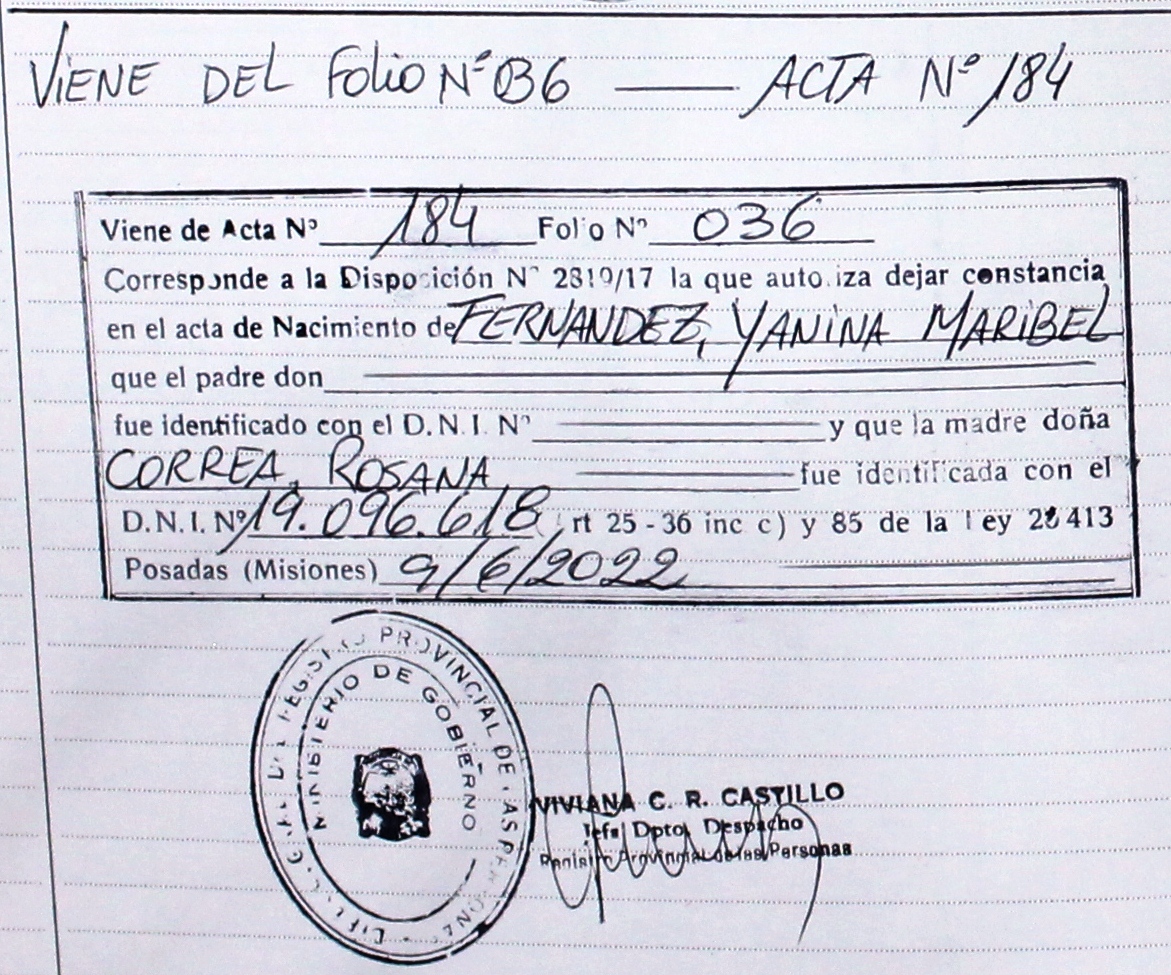 VIENE DEL FOLIO Nº 036 — ACTA Nº 184
Viene de Acta Nº 184 Folio Nº 036
Corresponde a la Disposición Nº 2819/17 la que autoriza dejar constancia
en el acta de Nacimiento de FERNANDEZ, YANINA MARIBEL
que el padre don
fue identificado con el D.N.I. Nº y que la madre doña
CORREA, ROSANA fue identificada con el
D.N.I. Nº 19.096.618 rt 25 - 36 inc c) y 85 de la ley 26413
Posadas (Misiones) 9/6/2022
REGISTRO PROVINCIAL DE LAS PERSONAS
MINISTERIO DE GOBIERNO
VIVIANA C. R. CASTILLO
Jefa Dpto. Despacho
Registro Provincial de las Personas